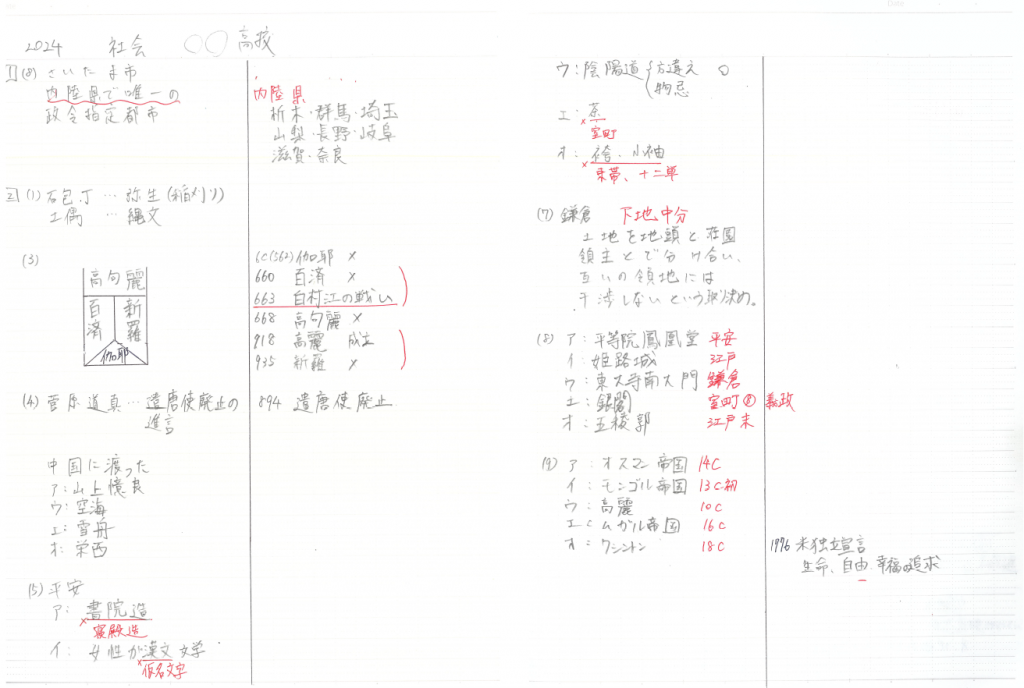 2024 社会 ○○高校
1 (8) さいたま市
内陸県で唯一の
政令指定都市
内陸県
栃木・群馬・埼玉
山梨・長野・岐阜
滋賀・奈良
2 (1) 石包丁…弥生(稲メリ)
土偶 …縄文
(3)
高句麗
百済
新羅
伽耶
6C(562) 伽耶 ×
660 百済 ×
663 白村江の戦い
668 高句麗 ×
918 高麗 成立
935 新羅 ×
(4) 菅原道真…遣唐使廃止の
進言
894 遣唐使廃止
中国に渡った
ア:山上憶良
ウ:空海
エ:雪舟
オ:栄西
(5) 平安
ア: 書院造
× 寝殿造
イ: 女性が漢文文学
× 仮名文字
ウ:陰陽道 { 方違え ○
物忌
エ: 茶
× 室町
オ: 袴、小袖
× 束帯、十二単
(7) 鎌倉 下地中分
土地を地頭と荘園
領主とで分け合い、
互いの領地には
干渉しないという取決め。
(8) ア:平等院鳳凰堂 平安
イ:姫路城 江戸
ウ:東大寺南大門 鎌倉
エ:銀閣 室町⑧ 義政
オ:五稜郭 江戸末
(9) ア:オスマン帝国 14C
イ:モンゴル帝国 13C初
ウ:高麗 10C
エ:ムガル帝国 16C
オ:ワシントン 18C
1776 米独立宣言
生命、自由、幸福の追求